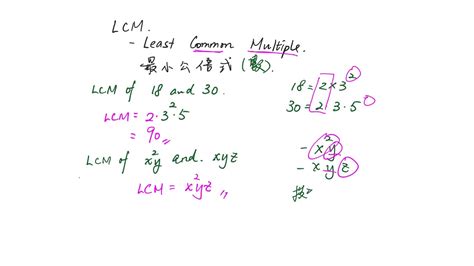 LCM.
- Least Common Multiple.
最小公倍式(數).
LCM of 18 and 30.
LCM = 2·3²·5
= 90,,
18 = 2 × 3²
30 = 2 3·5
LCM of x²y and xyz
LCM = x²yz,,
- x²y
- xyz